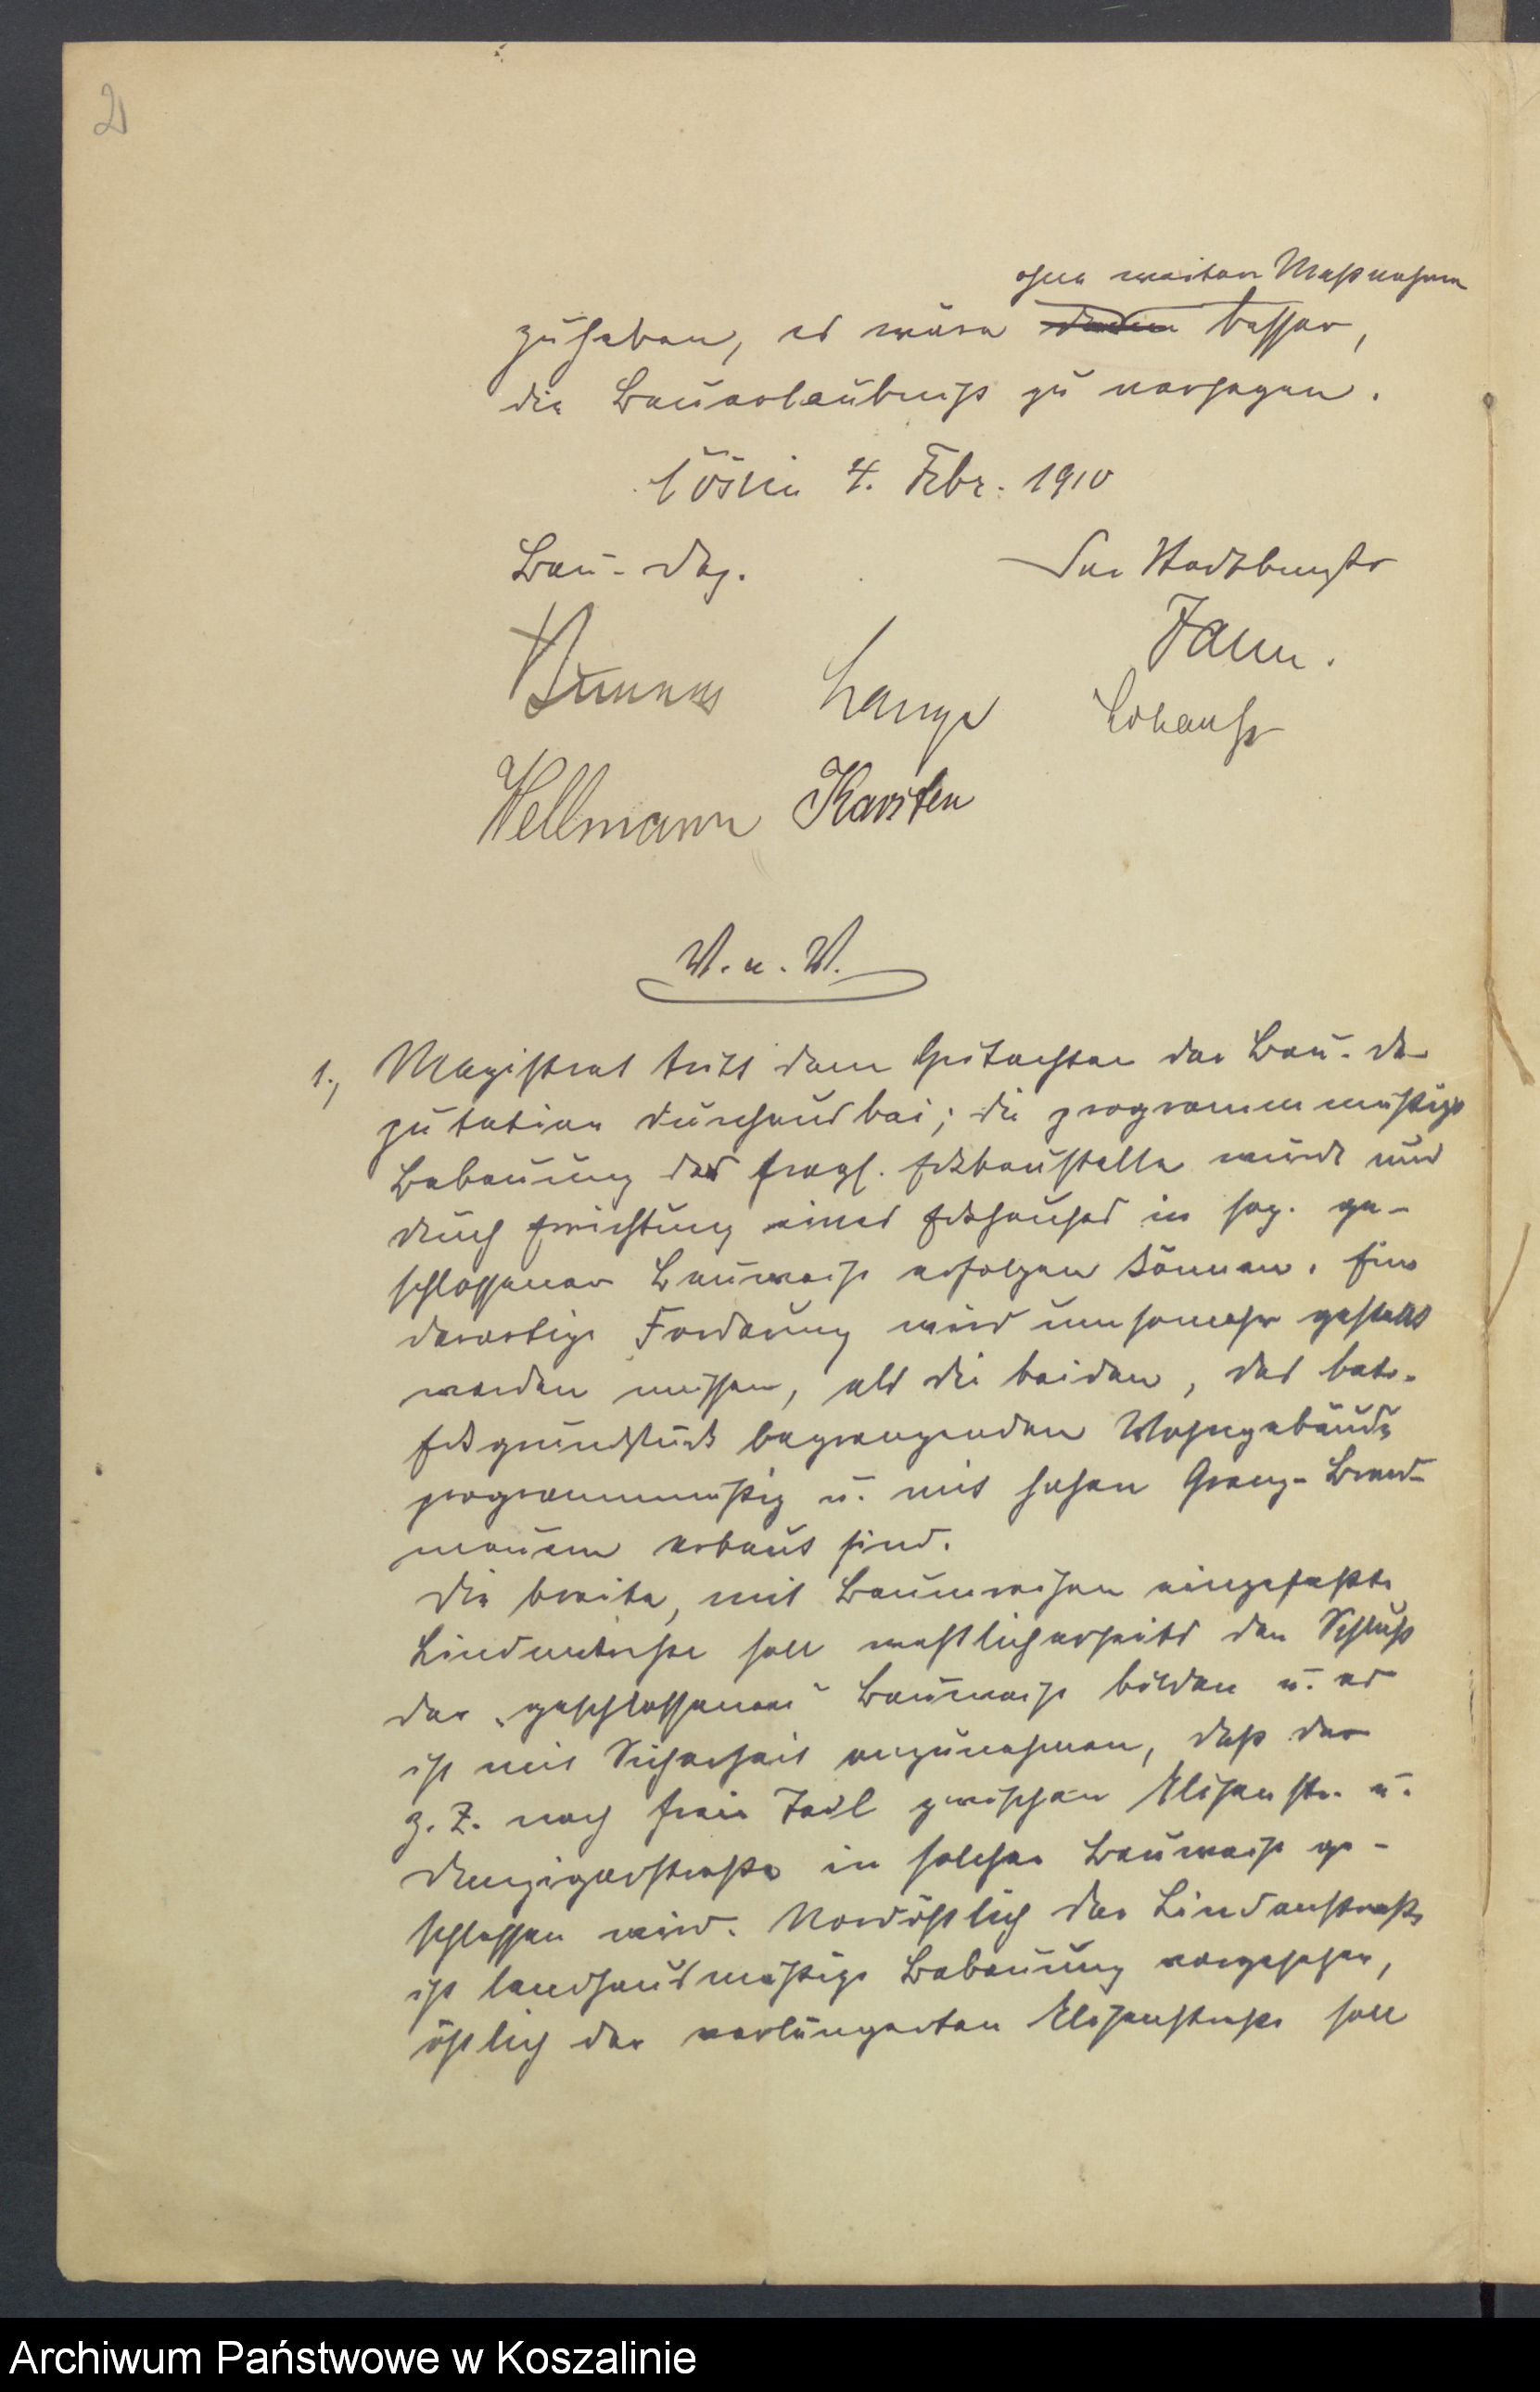 2
ohne weitere Maßnahme
zu haben, es wäre besser,
die Bauerlaubniß zu versagen.
Cöslin 4. Febr. 1910
Bau-Dep.
Der Stadtbmstr
Lange
Wellmann Karsten
V. u. V.
1., Magistrat tritt dem Gutachten der Bau-De-
putation durchaus bei; die programmmäßige
Bebauung der fragl. Eckbaustelle würde nur
durch Errichtung eines Eckhauses in sog. ge-
schlossener Bauweise erfolgen können. Eine
derartige Forderung wird umsomehr gestellt
werden müssen, als die beiden, das betr.
Eckgrundstück begrenzenden Wohngebäude
programmmäßig u. mit hohen Grenz-Brand-
mauern erbaut sind.
Die breite, mit Baumreihen eingefaßte
Lindenstraße soll westlicherseits den Schluß
der „geschlossenen" Bauweise bilden u. es
ist mit Sicherheit anzunehmen, daß der
z. Z. noch freie Teil zwischen Elisenstr. u.
Danzigerstraße in solcher Bauweise ge-
schlossen wird. Nordöstlich der Lindenstraße
ist landhausmäßige Bebauung vorgesehen,
östlich der verlängerten Elisenstraße soll
Archiwum Państwowe w Koszalinie